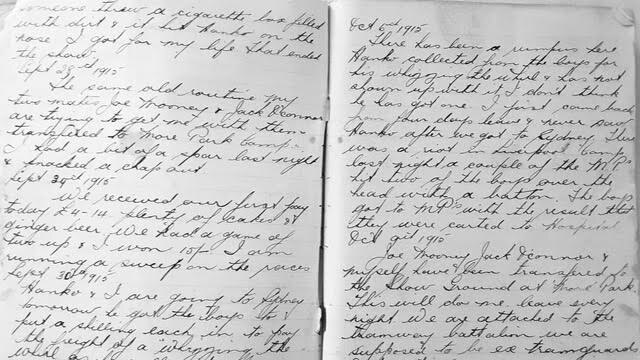 someone threw a cigarette box filled
with dirt & it hit Hanko on the
nose I got for my life that ended
the show
Sept 23rd 1915
The same old routine my
two mates Joe Mooney & Jack O'Connor
are trying to get me with them
transferred to Moore Park Camp.
I had a bit of a spar last night
& knocked a chap out
Sept 1915
We received our first pay
today £4-14. plenty of cakes &
ginger beer We had a game of
two up & I won 15/- I am
running a sweep on the races
Sept 30th 1915
Hanko & I are going to Sydney
tomorrow he got the boys to
put a shilling each in to pay
the freight of a "whizzing the
Oct 6th 1915
There has been a rumpus here
Hanko collected from the boys for
his whizzing the whirl & has not
shown up with it I don't think
he has got one. I first came back
from four days leave & never saw
Hanko after we got to Sydney. There
was a riot in Liverpool Camp
last night a couple of the M.P's
hit two of the boys over the
head with a batton. The boys
got to MP's with the result that
they were carted to Hospital
Oct 9th 1915
Joe Mooney Jack O'Connor &
myself have been transfered to
the Show Ground at Moore Park.
This will do me. leave every
night We are attached to the
tramway battalion we are
supposed to be ex tramguards